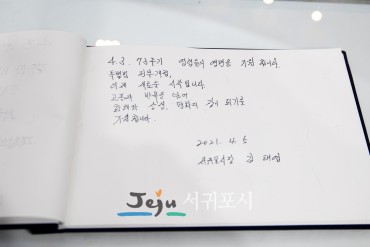 4.3. 73주기 영령들의 명복을 기원 합니다.
특별법 전부개정,
이제 새로운 시작입니다.
고통과 반목을 넘어
화해와 상생, 평화의 길이 되기를
기원합니다.
2021. 4. 5
서귀포시장 김 태엽
Jeju 서귀포시